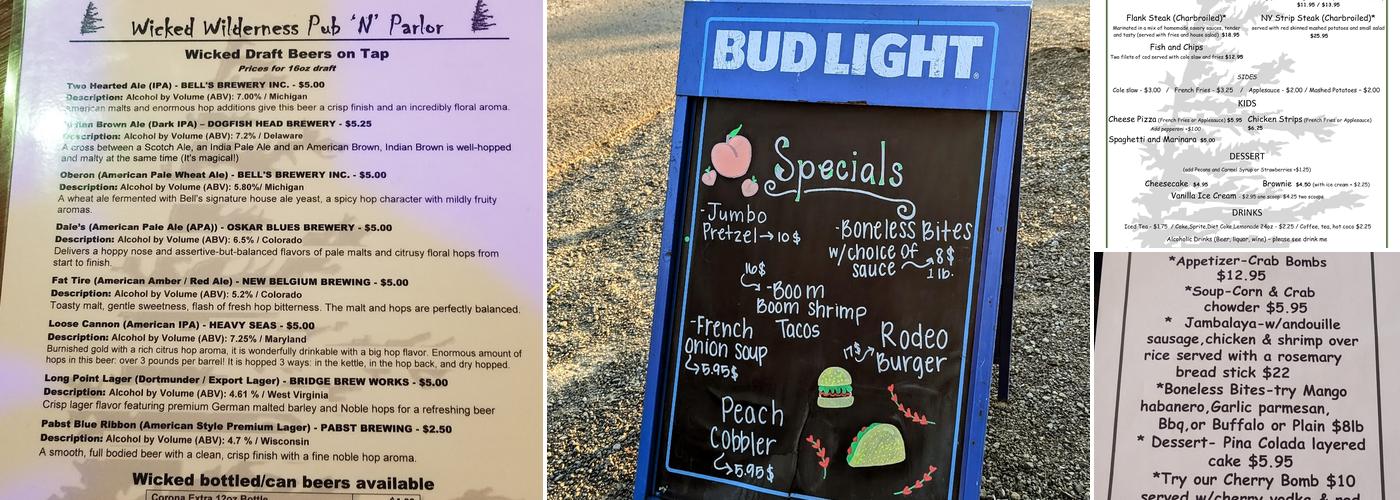 Wicked Wilderness Pub 'N' Parlor
Wicked Draft Beers on Tap
Prices for 16oz draft
Two Hearted Ale (IPA) - BELL'S BREWERY INC. - $5.00
Description: Alcohol by Volume (ABV): 7.00% / Michigan
American malts and enormous hop additions give this beer a crisp finish and an incredibly floral aroma.
Indian Brown Ale (Dark IPA) – DOGFISH HEAD BREWERY - $5.25
Description: Alcohol by Volume (ABV): 7.2% / Delaware
A cross between a Scotch Ale, an India Pale Ale and an American Brown, Indian Brown is well-hopped
and malty at the same time (It's magical!)
Oberon (American Pale Wheat Ale) - BELL'S BREWERY INC. - $5.00
Description: Alcohol by Volume (ABV): 5.80%/ Michigan
A wheat ale fermented with Bell's signature house ale yeast, a spicy hop character with mildly fruity
aromas.
Dale's (American Pale Ale (APA)) - OSKAR BLUES BREWERY - $5.00
Description: Alcohol by Volume (ABV): 6.5% / Colorado
Delivers a hoppy nose and assertive-but-balanced flavors of pale malts and citrusy floral hops from
start to finish.
Fat Tire (American Amber / Red Ale) - NEW BELGIUM BREWING - $5.00
Description: Alcohol by Volume (ABV): 5.2% / Colorado
Toasty malt, gentle sweetness, flash of fresh hop bitterness. The malt and hops are perfectly balanced.
Loose Cannon (American IPA) - HEAVY SEAS - $5.00
Description: Alcohol by Volume (ABV): 7.25% / Maryland
Burnished gold with a rich citrus hop aroma, it is wonderfully drinkable with a big hop flavor. Enormous amount of
hops in this beer: over 3 pounds per barrel! It is hopped 3 ways: in the kettle, in the hop back, and dry hopped.
Long Point Lager (Dortmunder / Export Lager) - BRIDGE BREW WORKS - $5.00
Description: Alcohol by Volume (ABV): 4.61 % / West Virginia
Crisp lager flavor featuring premium German malted barley and Noble hops for a refreshing beer
Pabst Blue Ribbon (American Style Premium Lager) - PABST BREWING - $2.50
Description: Alcohol by Volume (ABV): 4.7 % / Wisconsin
A smooth, full bodied beer with a clean, crisp finish with a fine noble hop aroma.
Wicked bottled/can beers available
Corona Extra 12oz Bottle
BUD LIGHT
Specials
-Jumbo
Pretzel → 10$
-Boneless Bites
w/choice of
sauce → 8$
1 lb.
16$
-Boom
Boom shrimp
Tacos
-French
onion soup
5.95$
Rodeo
Burger
17$
Peach
Cobbler
5.95$
$11.95 / $13.95
Flank Steak (Charbroiled)* NY Strip Steak (Charbroiled)*
Marinated in a mix of homemade savory sauces, tender
and tasty (served with fries and house salad) $18.95
served with red skinned mashed potatoes and small salad
$25.95
Fish and Chips
Two filets of cod served with cole slaw and fries $12.95
SIDES
Cole slaw - $3.00 / French Fries - $3.25 / Applesauce - $2.00 / Mashed Potatoes – $2.00
KIDS
Cheese Pizza (French Fries or Applesauce) $5.95 Chicken Strips (French Fries or Applesauce)
Add pepperoni +$1.00 $6.25
Spaghetti and Marinara $5.00
DESSERT
(add Pecans and Carmel Syrup or Strawberries +$1.25)
Cheesecake $4.95 Brownie $4.50 (with ice cream – $2.25)
Vanilla Ice Cream - $2.95 one scoop $4.25 two scoops
DRINKS
Iced Tea - $1.75 / Coke,Sprite,Diet Coke,Lemonade 24oz - $2.25 / Coffee, tea, hot coco $2.25
Alcoholic Drinks (Beer, liquor, wine) – please see drink me
*Appetizer-Crab Bombs
$12.95
*Soup-Corn & Crab
chowder $5.95
* Jambalaya-w/andouille
sausage,chicken & shrimp over
rice served with a rosemary
bread stick $22
*Boneless Bites-try Mango
habanero,Garlic parmesan,
Bbq,or Buffalo or Plain $8lb
* Dessert- Pina Colada layered
cake $5.95
*Try our Cherry Bomb $10
served w/cherry vodka & red